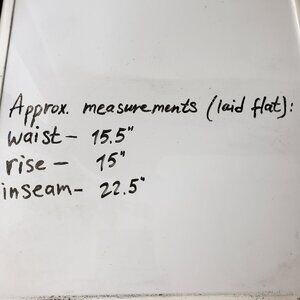 Approx. measurements (laid flat):
waist – 15.5"
rise – 15"
inseam – 22.5"